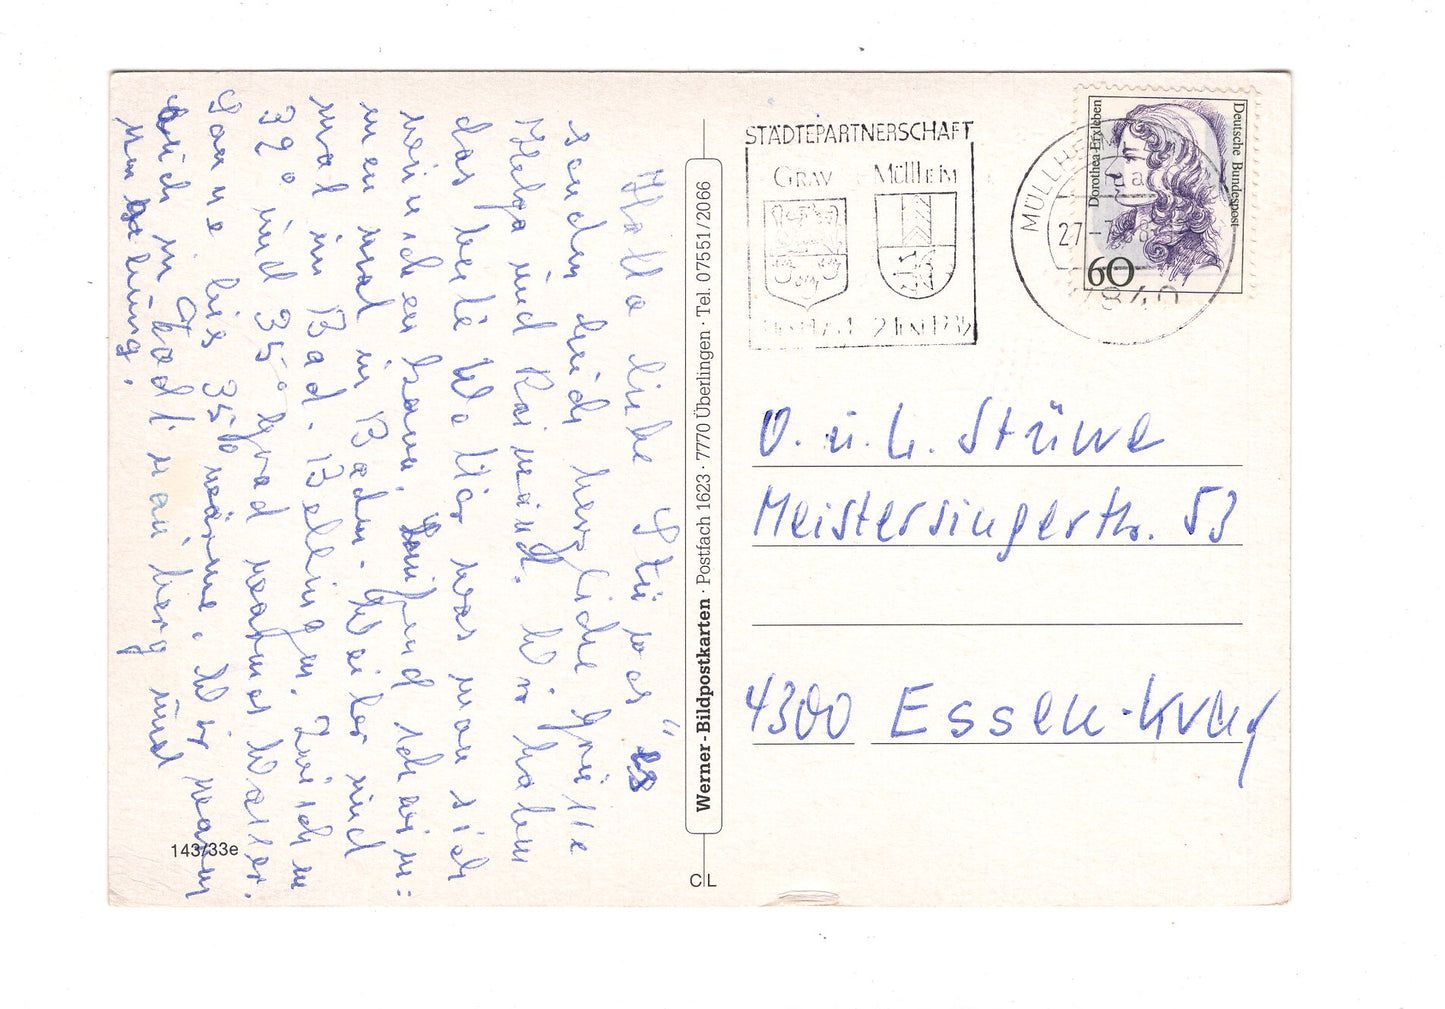 Hallo liebe Stüwes"
senden euch herzliche Grüße
Helga und Raimund. Wir haben
das beste Wetter was man sich
wünschen kann. ich wim:
men mal in Baden. Weiler und
mal im Bad. Bellingen. Zwischen
32° und 35° Grad warmes Wasser.
Sonne bis 35° wärme. Wir waren
auch in Stadt. und
Umgebung.
143/33e
Werner-Bildpostkarten · Postfach 1623 · 7770 Überlingen · Tel. 07551/2066
CL
STÄDTEPARTNERSCHAFT
GRAY MÜLLHEIM
MÜLLHEIM
27.-7.
7840
Dorothea Erxleben
Deutsche Bundespost
60
O. u. h. Stüwe
Meistersingerstr. 53
4300 Essen-Kray